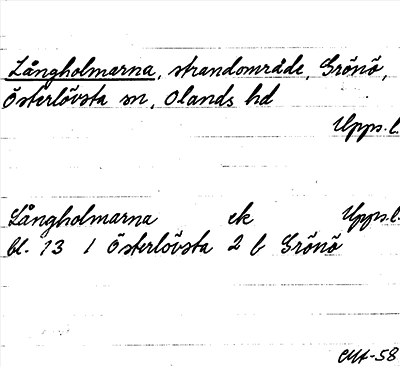 Långholmarna, strandområde, Grönö,
Österlövsta sn, Olands hd
Upps. l.
Långholmarna ek Upps. l.
bl. 13 I Österlövsta 2 b Grönö
-58